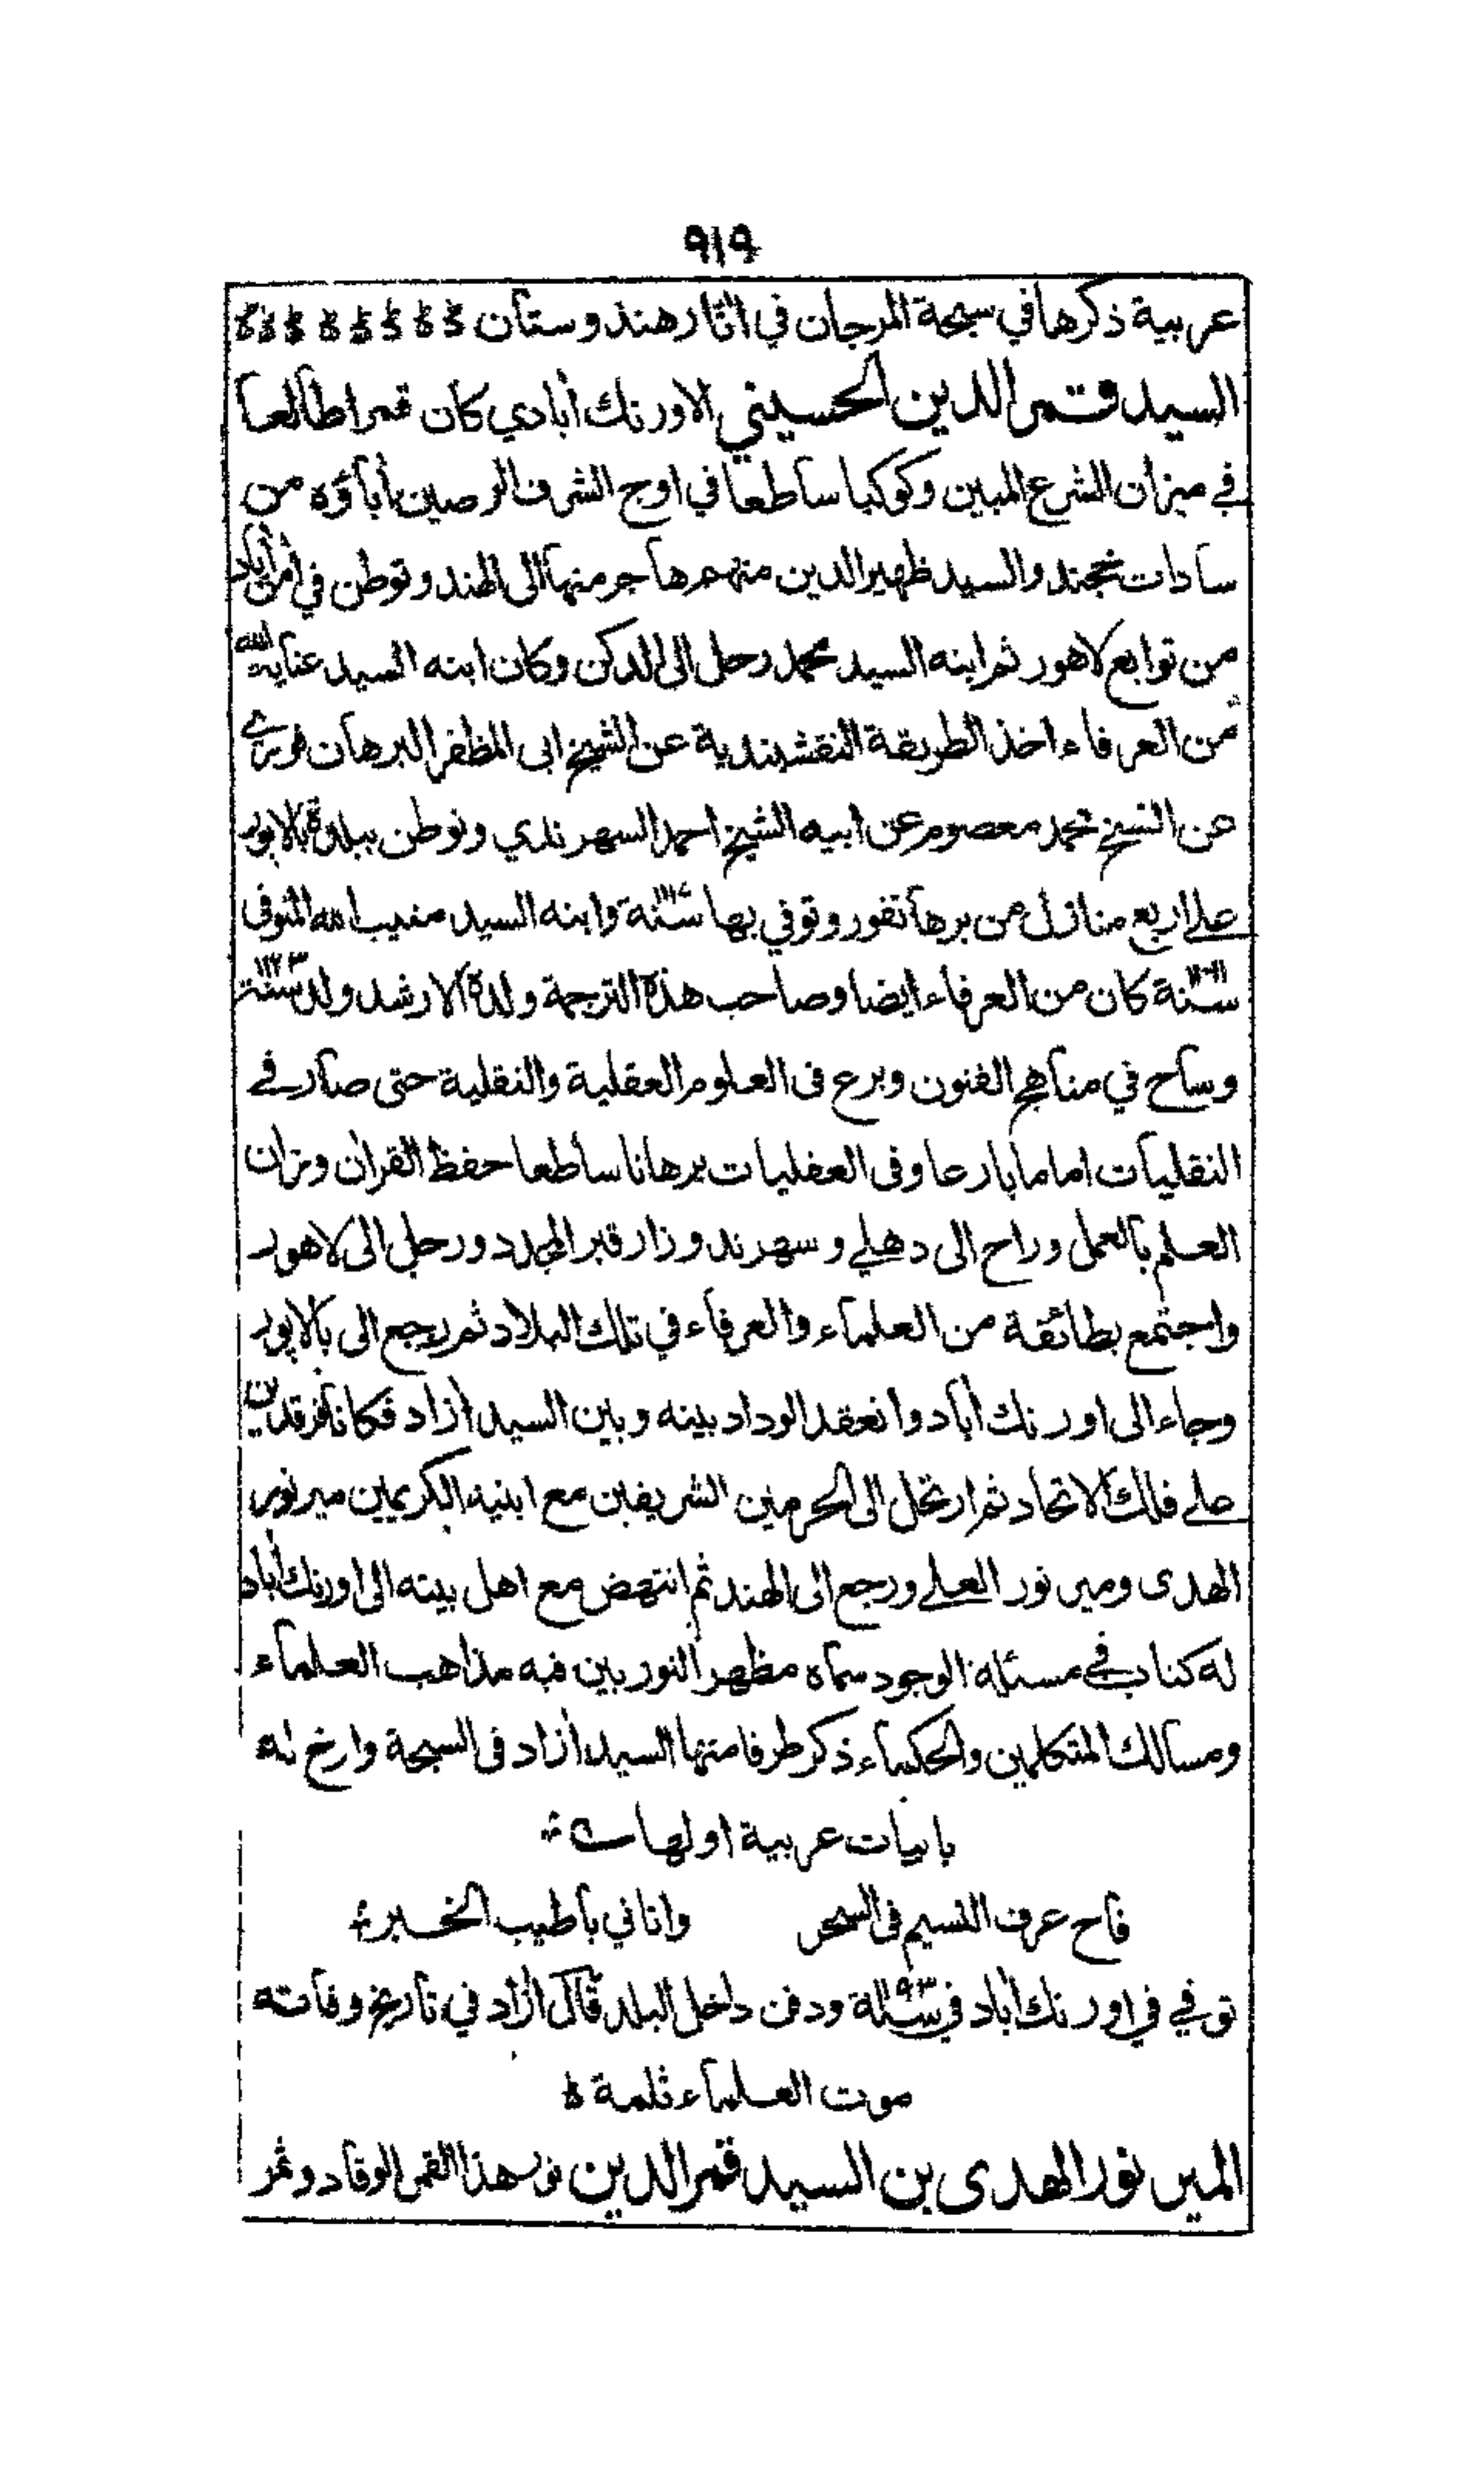 ٩١٩
عربية ذكرها في سبحة المرجان في اثار هندوستان
السيد قمر الدين الحسيني الاورنك أبادي كان قمرا طالعا
في ميزان الشرع المبين وكوكبا ساطعا في اوج الشرف الرصين أباؤه من
سادات خجند والسيد ظهير الدين منهم هاجر منها الى الهند وتوطن في امن أباد
من توابع لاهور ثم ابنه السيد محمد رحل الى الدكن وكان ابنه السيد عناية الله
من العرفاء اخذ الطريقة النقشبندية عن الشيخ ابى المظفر البرهان فوري
عن الشيخ محمد معصوم عن ابيه الشيخ احمد السهرندي وتوطن ببلدة بالابور
على اربع منازل من برهانفور وتوفي بها سنة ١١١٧ وابنه السيد منيب الله المتوفى
سنة ١١٦١ كان من العرفاء ايضا وصاحب هذه الترجمة ولده الارشد ولد سنة ١١٢٣
وساح في مناهج الفنون وبرع فى العلوم العقلية والنقلية حتى صار في
النقليات اماما بارعا وفى العقليات برهانا ساطعا حفظ القرأن وزان
العلم بالعمل وراح الى دهلي وسهرند وزار قبر المجدد ورحل الى لاهور
واجتمع بطائفة من العلماء والعرفاء في تلك البلاد ثم رجع الى بالابور
وجاء الى اورنك أباد وانعقد الوداد بينه وبين السيد أزاد فكانا كفرقدين
على فلك الاتحاد ثم ارتحل الى الحرمين الشريفين مع ابنيه الكريمين مير نور
الهدى ومير نور العلى ورجع الى الهند ثم انتهض مع اهل بيته الى اورنك أباد
له كتاب في مسئلة الوجود سماه مظهر النور بين فيه مذاهب العلماء
ومسالك المتكلمين والحكماء ذكر طرفا منها السيد أزاد فى السبحة وارخ له
بابيات عربية اولها
فاح عرف النسيم فى السحر واتاني بأطيب الخبر
توفي في اورنك أباد في سنة ١١٩٣ ودفن داخل البلد قال أزاد في تاريخ وفاته
موت العلماء ثلمة
المير نور الهدى بن السيد قمر الدين نور هذا القمر الوقاد وثمر